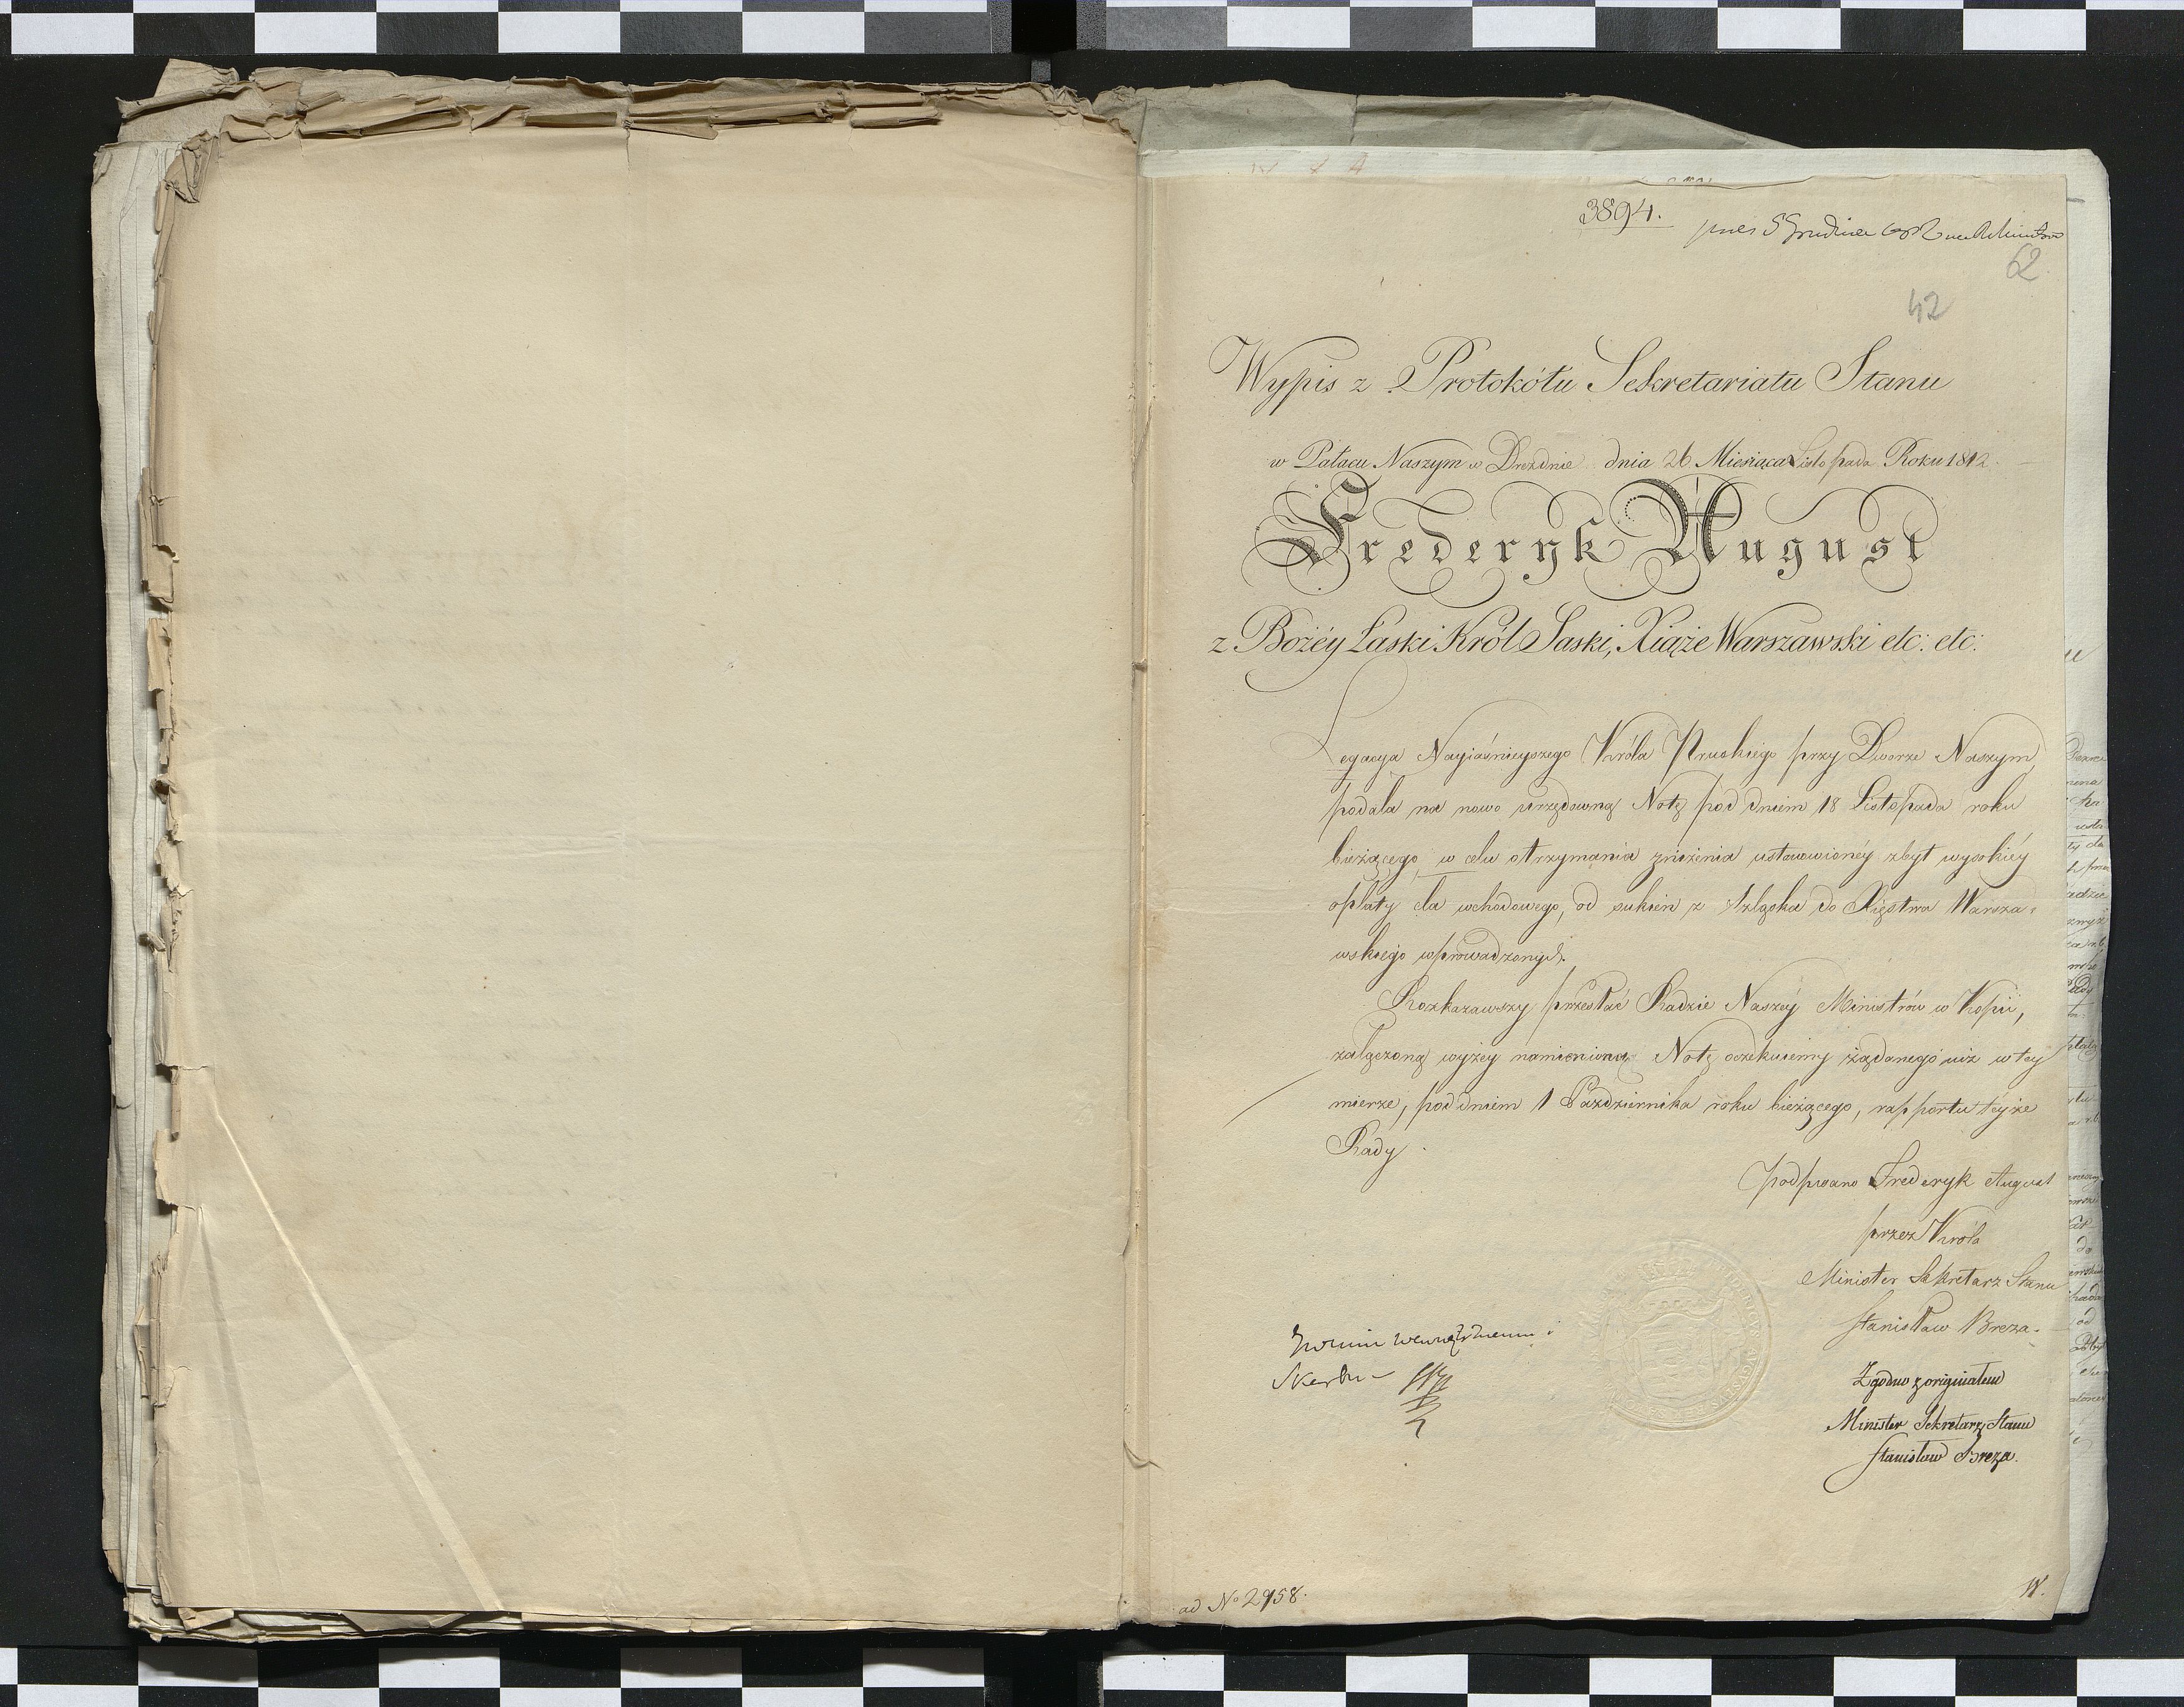 3894.
62
42
Wypis z Protokółu Sekretariatu Stanu
w Pałacu Naszym w Dreźdnie dnia 26 Miesiąca Listopada Roku 1812.
Fryderyk August
z Bożéy Łaski Król Saski, Xiąże Warszawski etc: etc:
Legacya Nayiaśnieyszego Króla Pruskiego przy Dworze Naszym,
podała na nowo urzędową Notę pod dniem 18 Listopada roku
bieżącego, w celu otrzymania zniżenia ustanowionéy zbyt wysokiéy
opłaty cła wchodowego, od sukien z Szląska do Xięstwa Warsza-
wskiego wprowadzonych.
Rozkazawszy przesłać Radzie Naszéy Ministrów w Kopii,
załączoną wyżey namienioną Notę oczekuiemy żądanego iuż w tey
mierze, pod dniem 1 Października roku bieżącego, rapportu téyże
Rady.
Podpisano Frederyk August
przez Króla
Minister Sekretarz Stanu
Stanisław Breza.
Zgodno z originałem
Minister Sekretarz Stanu
Stanisław Breza.
wewnętrznemu i
Skarbu
ad No 2958.
W.